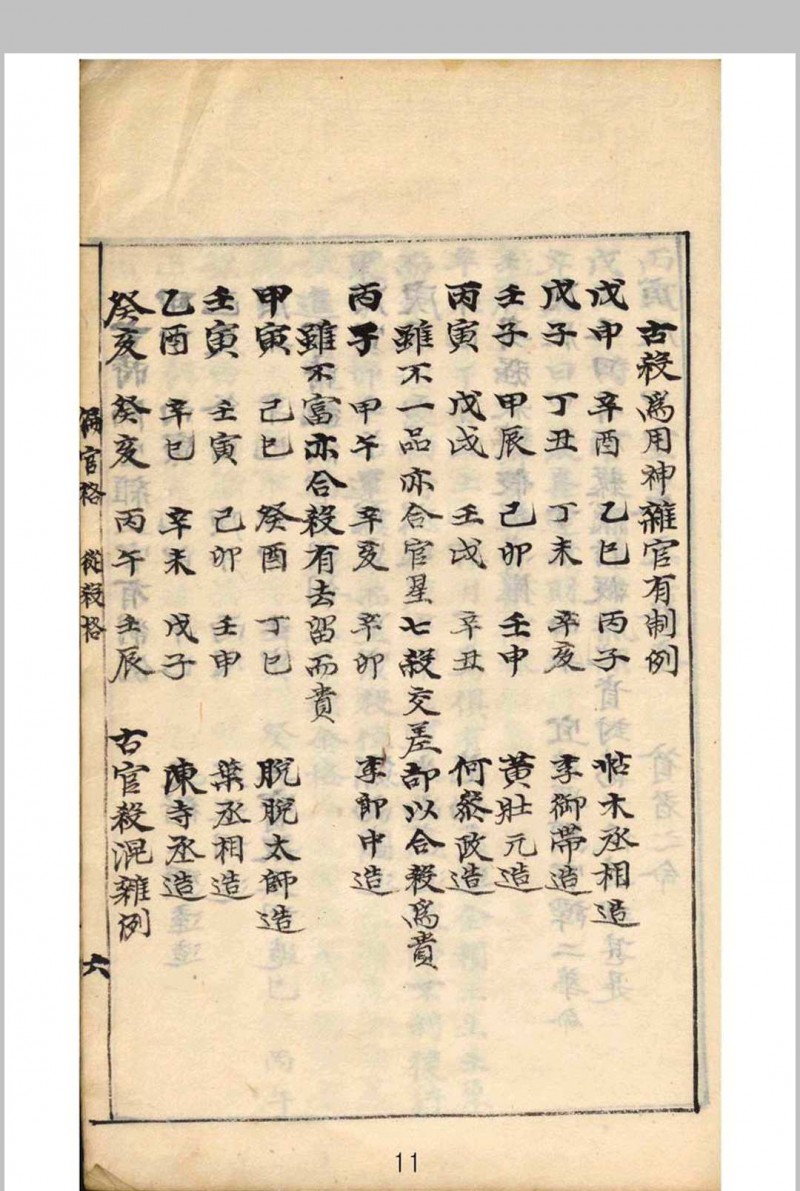 古殺為用神雜官有制例
戊申 辛酉 乙巳 丙子 帖木丞相造
戊子 丁丑 丁未 辛亥 李御帶造
壬子 甲辰 己卯 壬申 黃壯元造
丙寅 戊戌 壬戌 辛丑 何叅政造
雖不一品亦合官星七殺交差却以合殺為貴
丙子 甲午 辛亥 辛卯 李郎中造
雖不富亦合殺有去留而貴
甲寅 己巳 癸酉 丁巳 脫脫太師造
壬寅 壬寅 己卯 壬申 葉丞相造
乙酉 辛巳 辛未 戊子 陳寺丞造
癸亥 癸亥 丙午 壬辰 古官殺混雜例
官格 從殺格 六
11